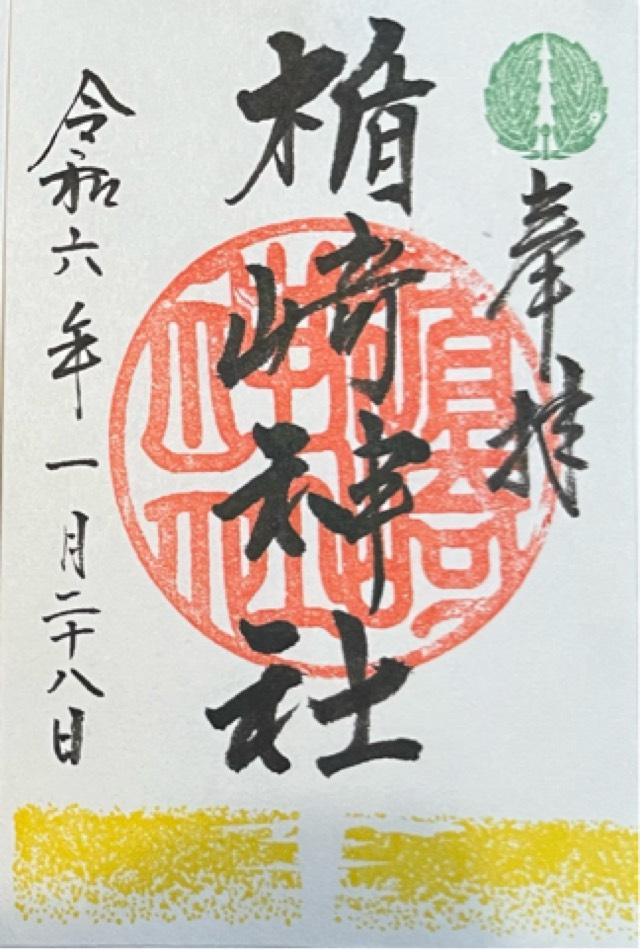 奉拝
楯崎神社
令和六年一月二十八日